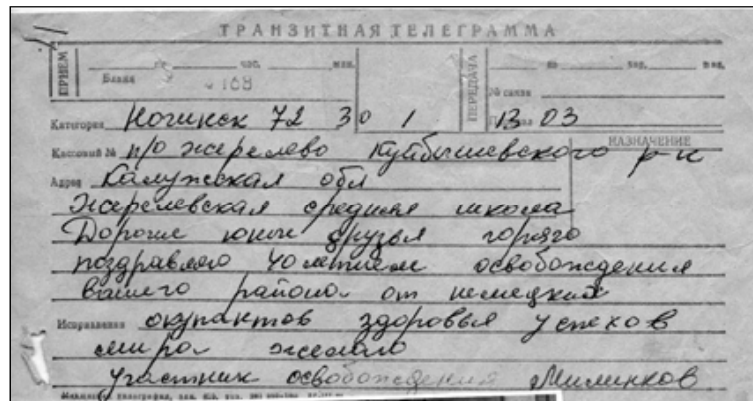 ТРАНЗИТНАЯ ТЕЛЕГРАММА
ПРИЕМ
час. мин.
Бланк 168
ПЕРЕДАЧА
го час. мин.
№ связи
Категория Ногинск 72 30 1 13 03
Кассовый № п/о жерелево Куйбышевского р-н
НАЗНАЧЕНИЕ
Адрес Калужская обл
Жерелевская средняя школа
Дорогие юные друзья горячо
поздравляю 40 летием освобождения
вашего района от немецких
Исправления окупантов здоровья успехов
мира желаю
участник освобождения Милинков